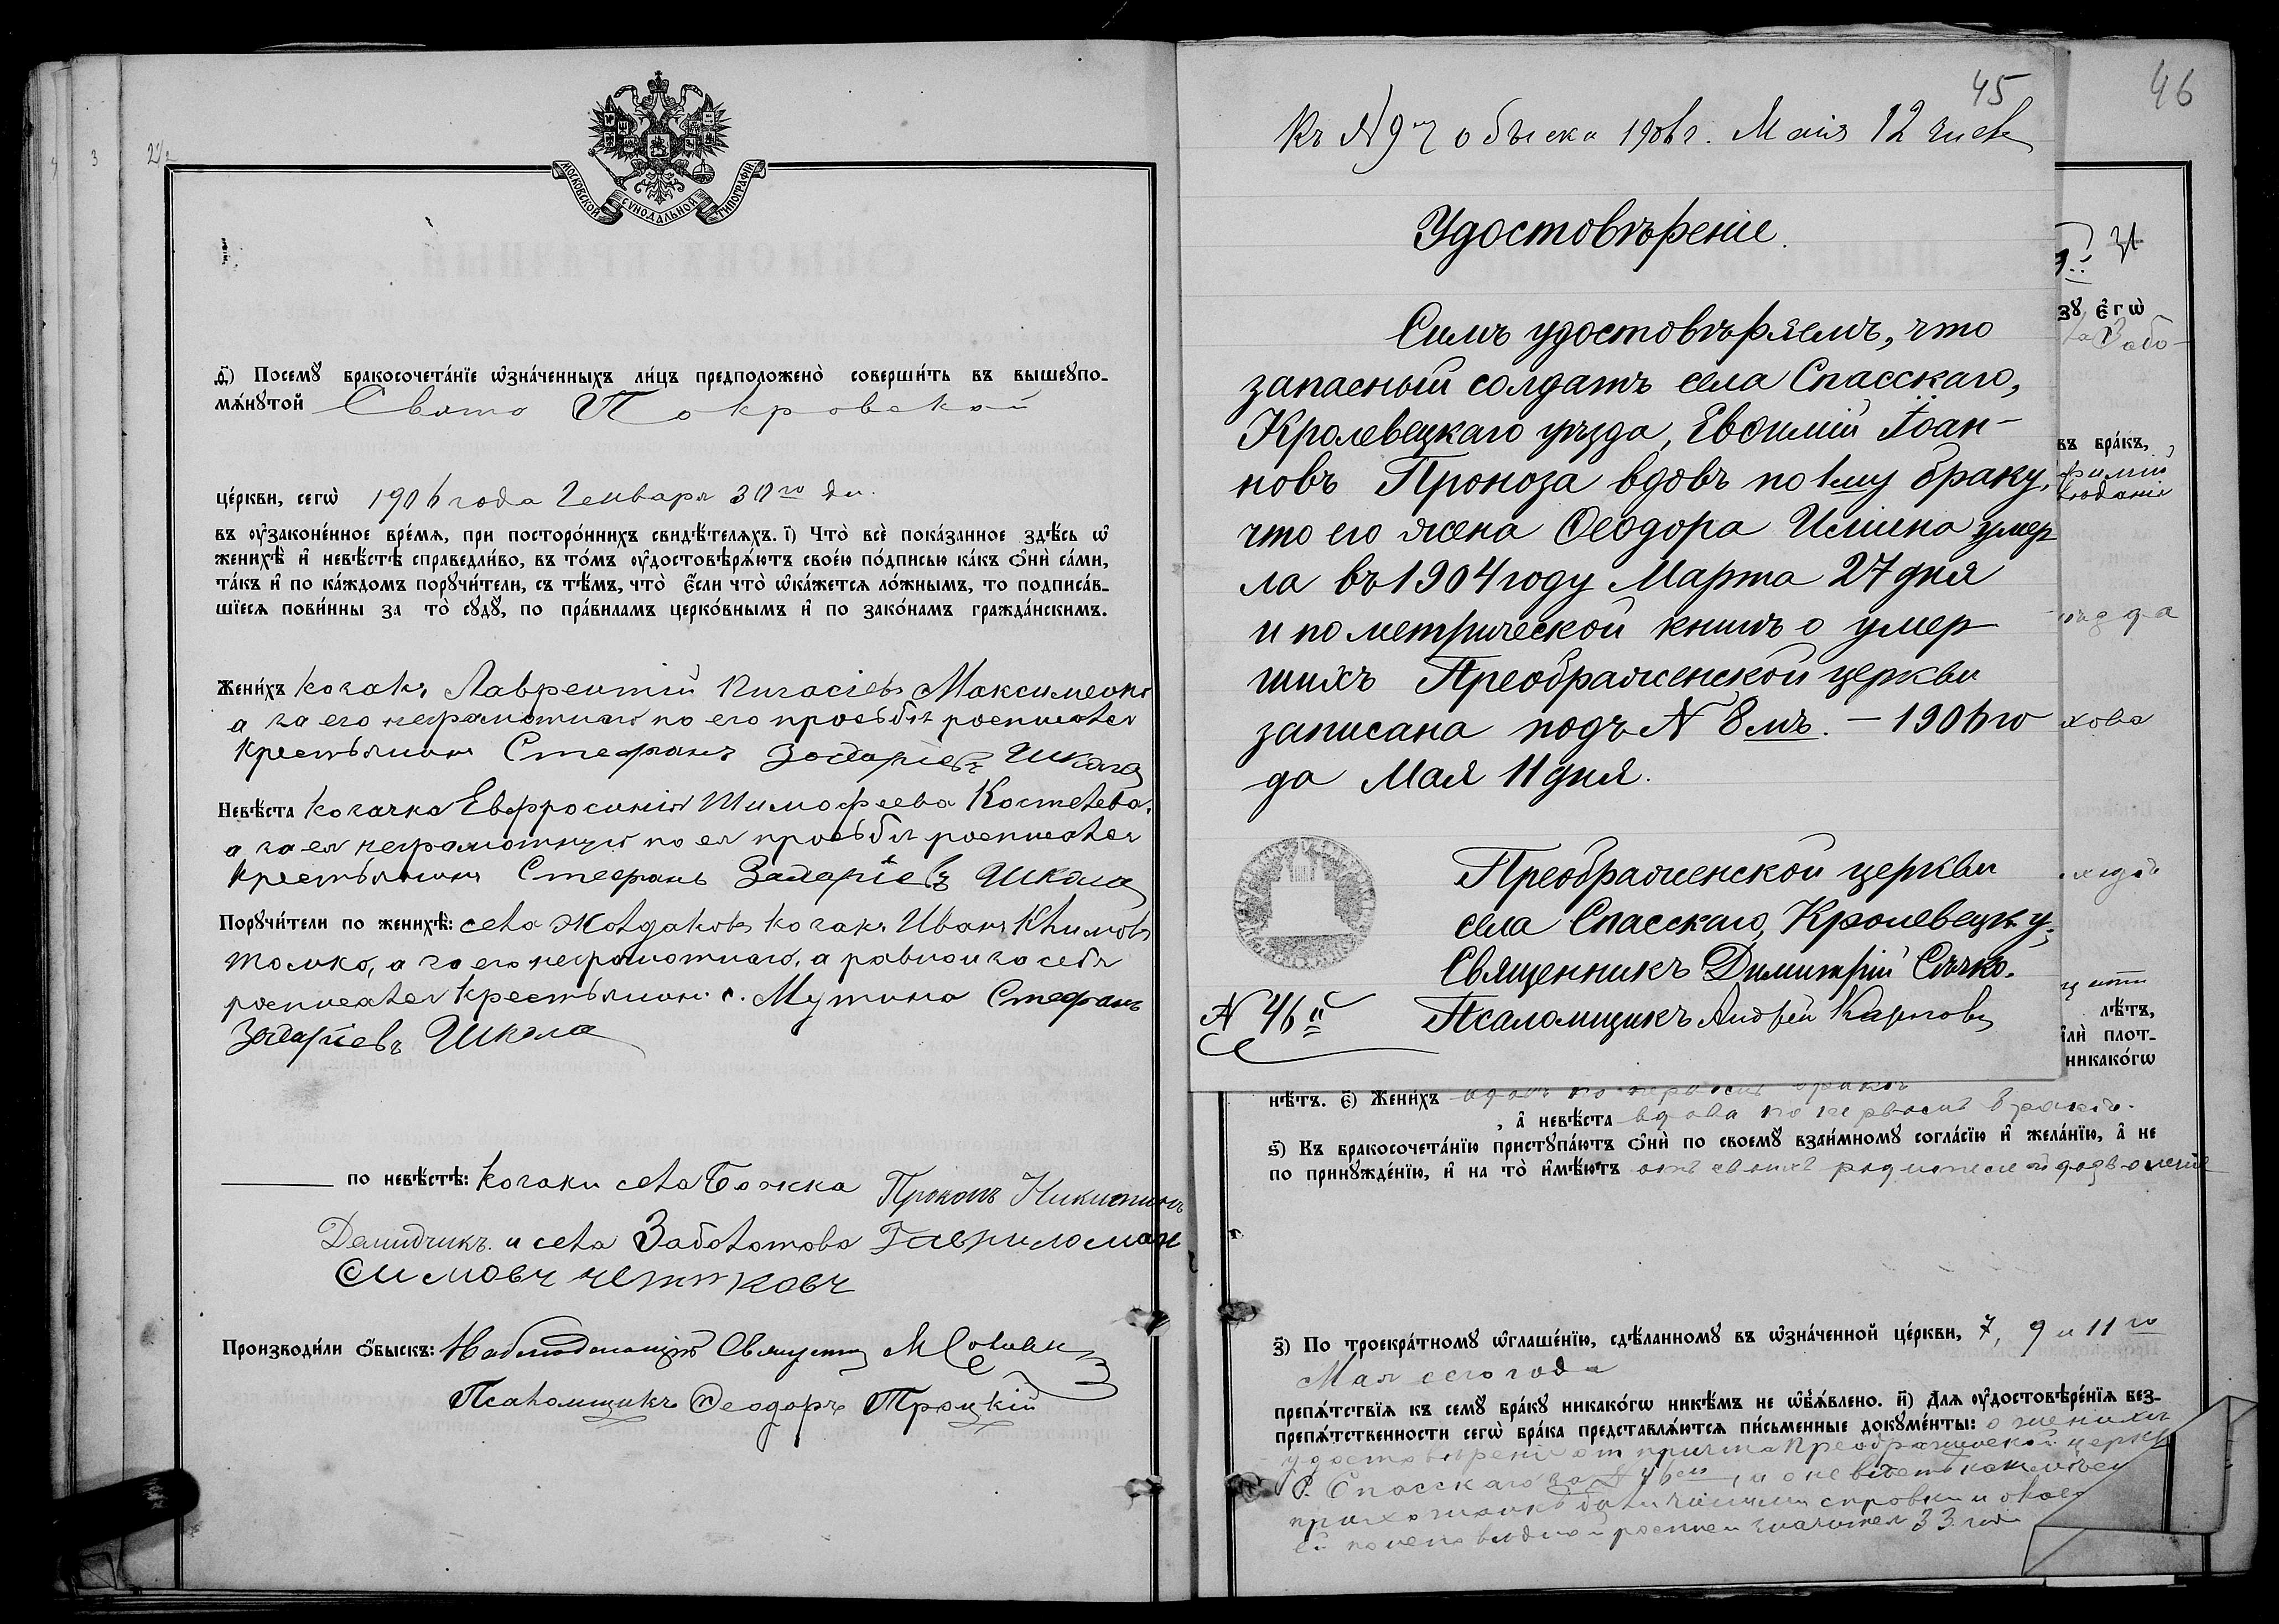 МОСКОВСКОЙ СѴНОДАЛЬНОЙ ТИПОГРАФІИ
д҃) Посемꙋ бракосочета́нїе ѡзна́ченныхъ ли́цъ предположено̀ соверши́ть въ вышеꙋпо-
мѧ́нꙋтой Свято Покровской
це́ркви, сегѡ̀ 1906 года Генваря 30го дн.
въ ᲂу҆зако́не́нное вре́мѧ, при посторо́ннихъ свидѣ́телѧхъ. і҃) Что̀ всѐ пока́занное здѣ́сь ѡ҆
женихѣ̀ и҆ невѣ́стѣ справедли́во, въ то́мъ ᲂу҆достовѣрѧ́ютъ свое́ю по́дписью ка́къ ѻ҆нѝ са́ми,
та́къ и҆ по ка́ждомъ порꙋчи́тели, съ тѣ́мъ, что̀ є҆́сли что̀ ѡ҆ка́жетсѧ ло́жнымъ, то подписа́в-
шїесѧ пови́нны за то̀ сꙋдꙋ̀, по пра́виламъ церко́внымъ и҆ по зако́намъ гражда́нскимъ.
Жени́хъ козакъ Лаврентій Максименко
а за его неграмотнаго по его просьбѣ росписался
крестьянинъ Стефанъ Захаріевъ Шкала
Невѣ́ста козачка Евфросинія Тимофеева Костелева,
а за ея неграмотную по ея просьбѣ росписался
крестьянинъ Стефанъ Захаріевъ Шкала
Порꙋчи́тели по женихѣ̀: села Жолдаковъ козакъ Иванъ Климовъ
Толмко, а за его неграмотнаго, а равно и за себя
росписался крестьянинъ с. Мутина Стефанъ
Захаріевъ Шкала
по невѣ́стѣ: козаки села Божка Прокопъ Никитинъ
Демидчикъ и села Заболотова Гаврило Мак
симовъ
Производи́ли ѻ҆́быскъ: Наблюдающій Священ
Псаломщикъ Ѳеодоръ Троцкій
45
46
Къ N 97 обыска 1906 г. Маія 12 числа
Удостовѣреніе.
Симъ удостовѣряемъ, что
запасный солдатъ села Спасскаго,
Кролевецкаго уѣзда, Евѳимій Іоан-
новъ Проноза вдовъ по 1му браку,
что его жена Ѳеодора Ильина умер
ла въ 1904 году Марта 27 дня
и по метрической книгѣ о умер
шихъ Преображенской церкви
записана подъ N 8мъ. — 1906 го
да Мая 11 дня.
Преображенской церкви
села Спасскаго, Кролевецк. у.
Священникъ Димитрій Сѣчко.
N 46й Псаломщикъ Андрей Карповъ
зꙋ є҆гѡ̀
Забо-
въ бра́къ,
лѣ́тъ,
и҆лѝ плот-
никако́гѡ
нѣ́тъ. є҃) Жени́хъ вдовъ по первомъ бракѣ
, а҆ невѣ́ста вдова по первомъ бракѣ.
ѕ҃) Къ бракосочета́нїю пристꙋпа́ютъ ѻ҆нѝ по своемꙋ̀ взаи́мномꙋ согла́сїю и҆ жела́нїю, а҆ не
по принꙋжде́нїю, и҆ на то̀ и҆мѣ́ютъ отъ своихъ родителей дозволеніе
з҃) По троекра́тномꙋ ѡ҆глаше́нїю, сдѣ́ланномꙋ въ ѡзна́ченной це́ркви, 7, 9 и 11го
Мая сего года
препѧ́тствїѧ къ семꙋ̀ бра́кꙋ никако́гѡ никѣ́мъ не ѡ҆б̾ѧ́влено. и҃) Длѧ ᲂу҆достовѣре́нїѧ без-
препѧ́тственности сегѡ̀ бра́ка представлѧ́ютсѧ пи́сьменные докꙋме́нты: о женихѣ
удостовѣреніе отъ причта Преображенской церкв
с. Спасскаго за N 46мъ, и о невѣстѣ
справки и
ей по исповѣдной росписи значится 33 года